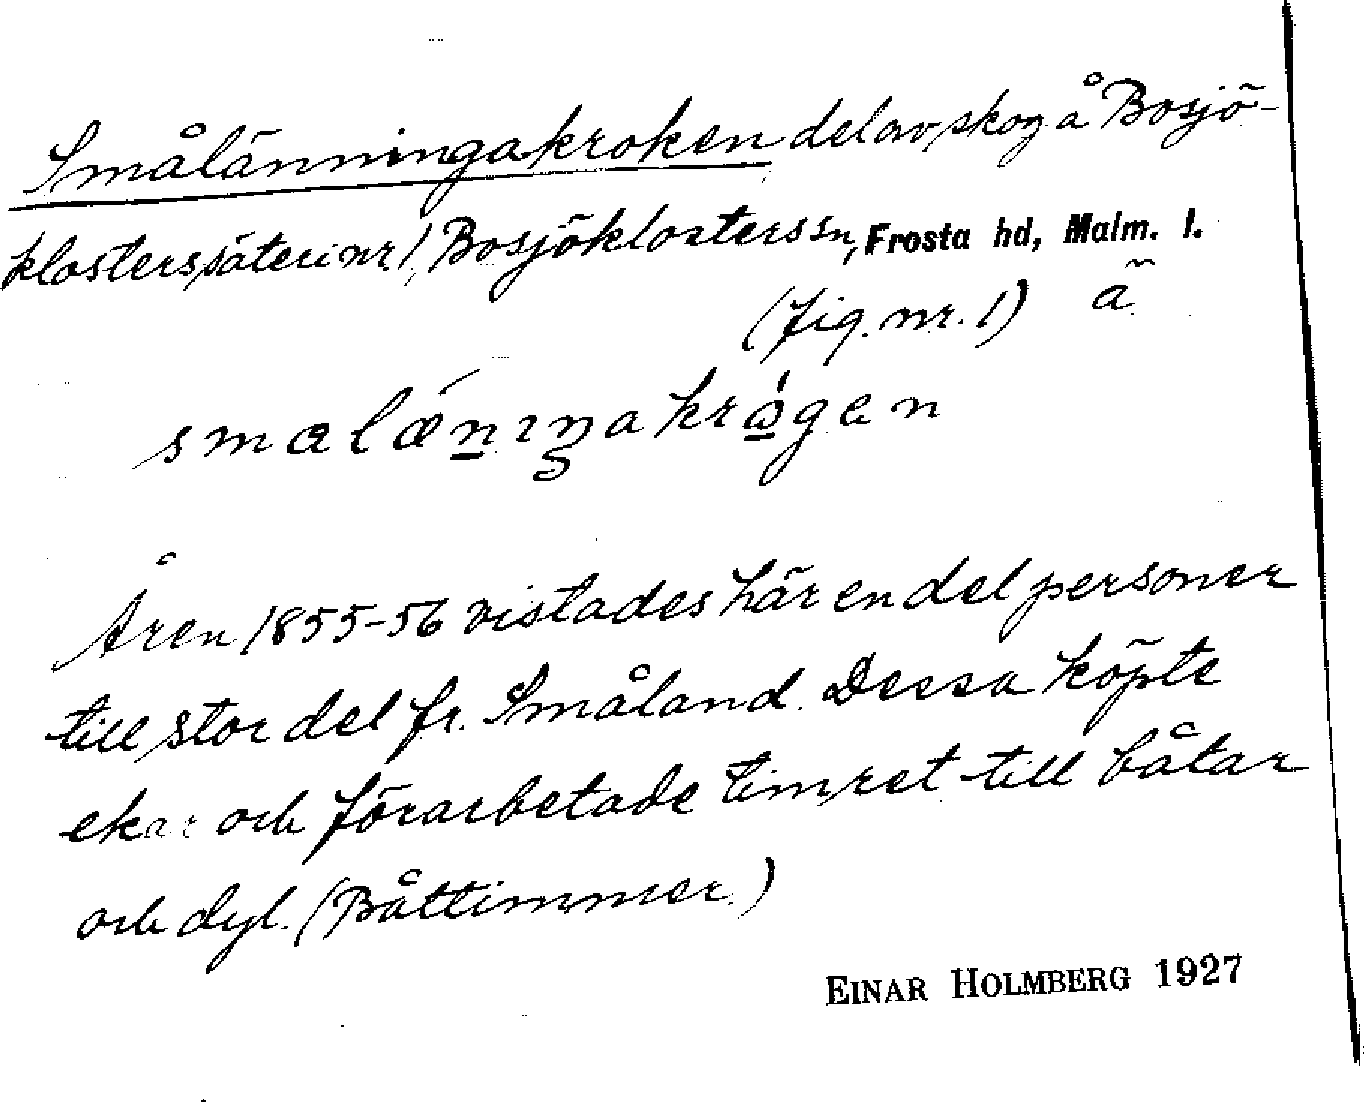 Smålänningakroken del av skog å Bosjö-
klosters säteri nr 1, Bosjöklosters sn, Frosta hd, Malm. l.
(fig. nr. 1) ä
smalæninakrågen
Åren 1855-56 vistades här en del personer
till stor del fr. Småland. Dessa köpte
ekar och förarbetade timret till båtar
och dyl. (Båttimmer.)
EINAR HOLMBERG 1927